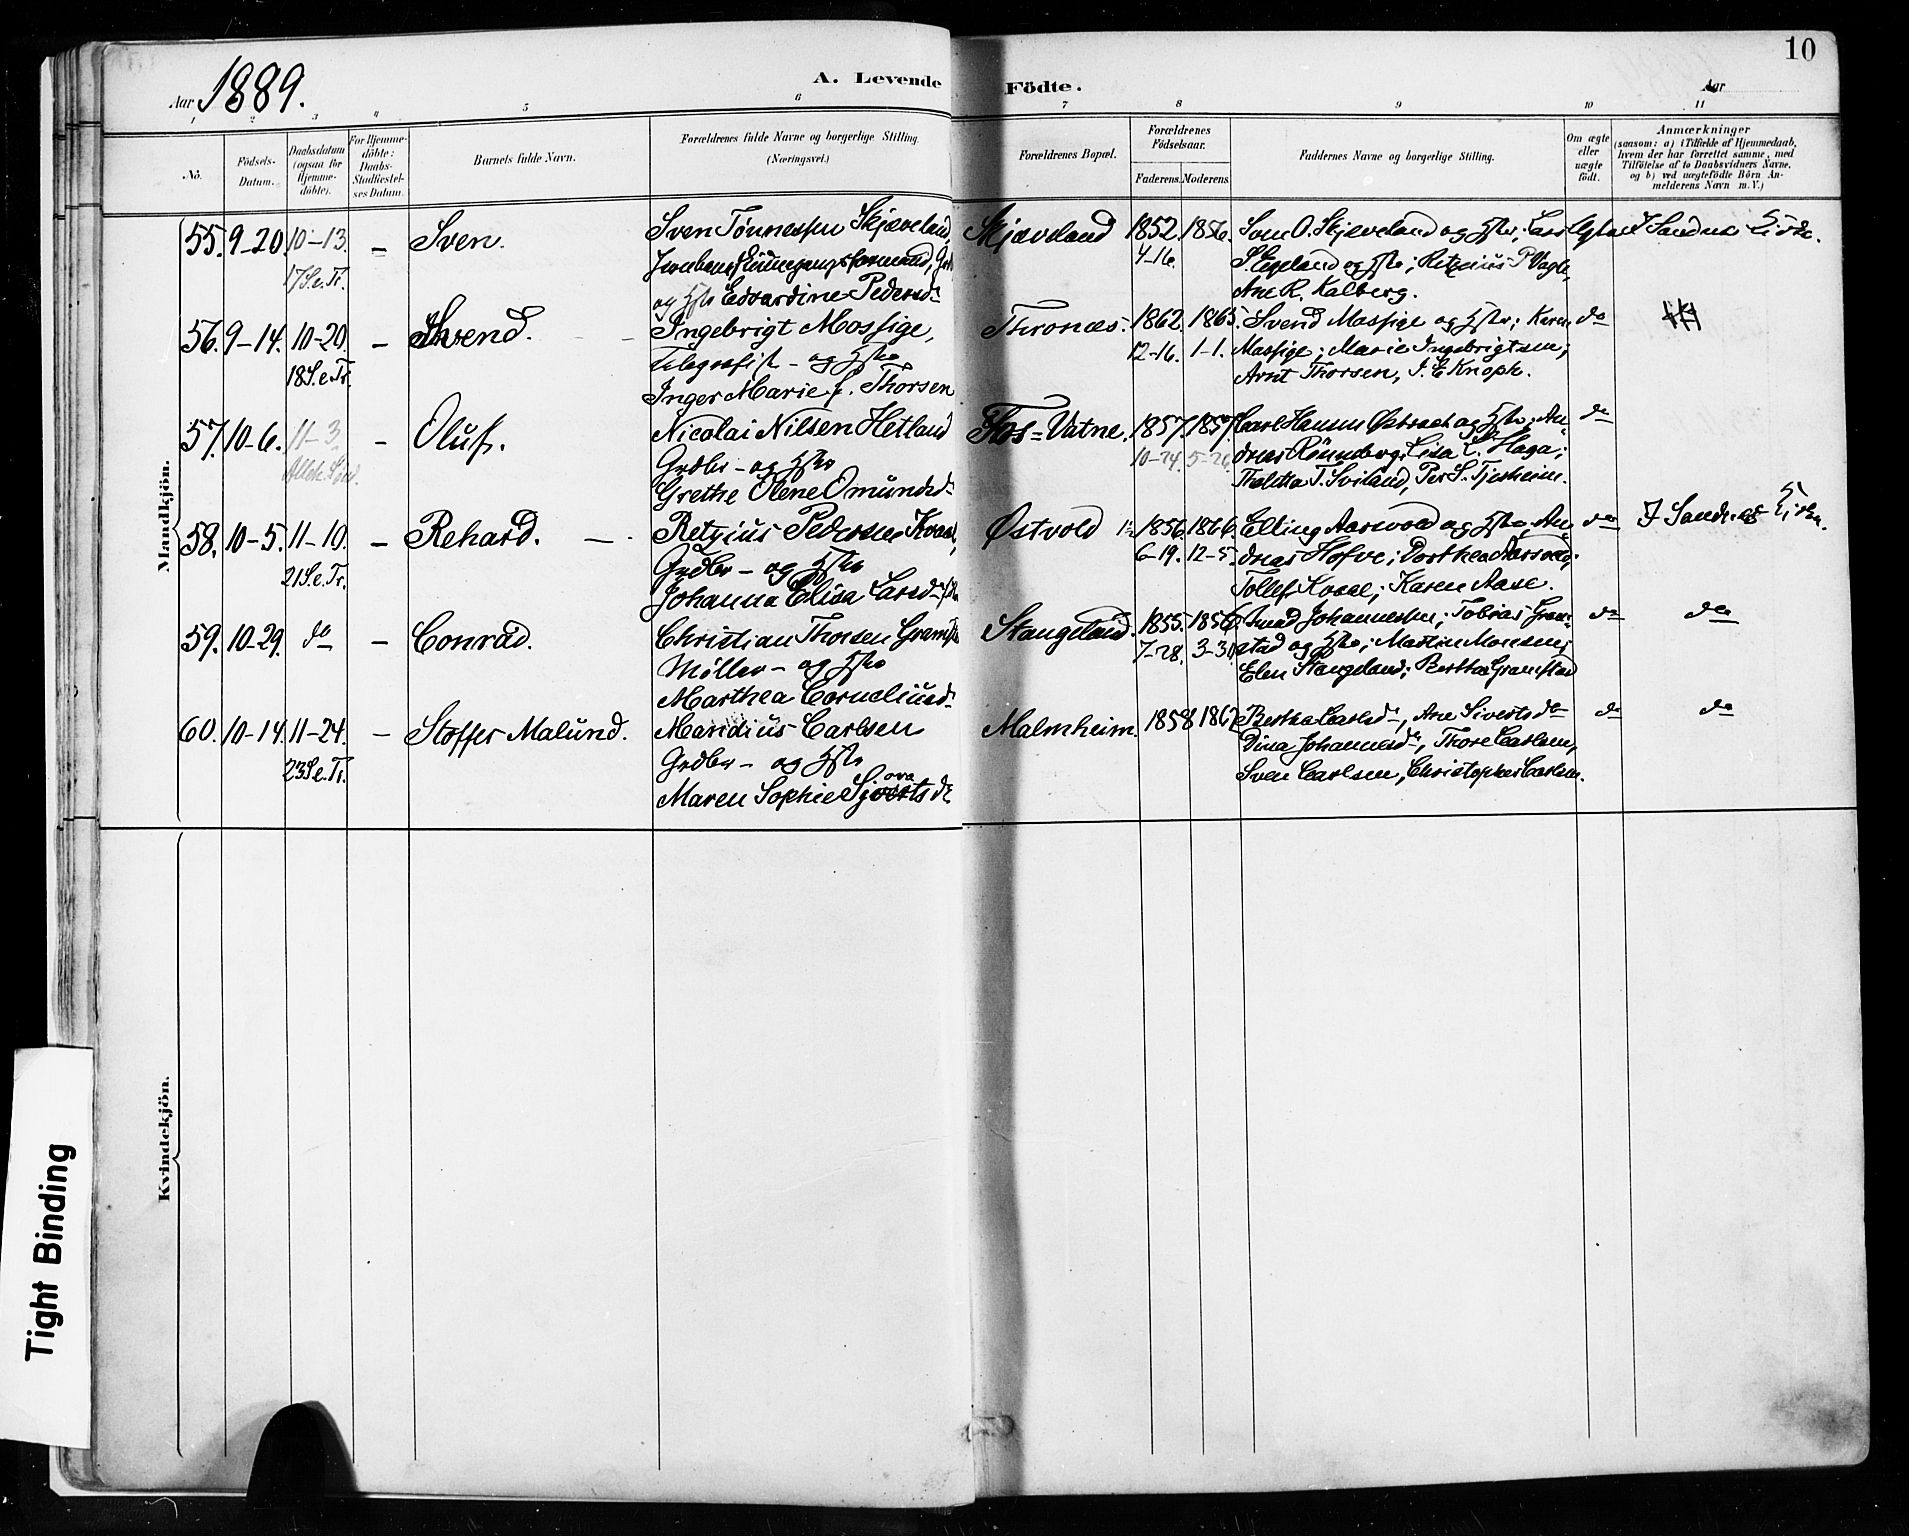 10
Aar 1889.
A. Levende Födte.
Aar
1 2 3 4 5 6 7 8 9 10 11
No.
Födsels-
Datum.
Daabsdatum
(ogsaa for
Hjemme-
döbte).
For Hjemme-
döbte:
Daabs-
Stadfæstel-
ses Datum.
Barnets fulde Navn.
Forældrenes fulde Navne og borgerlige Stilling.
(Næringsvei.)
Forældrenes Bopæl.
Forældrenes
Födselsaar.
Faderens. Moderens.
Faddernes Navne og borgerlige Stilling.
Om ægte
eller
uægte
födt.
Anmærkninger
(saasom: a) i Tilfælde af Hjemmedaab,
hvem der har forrettet samme, med
Tilföielse af to Daabsvidners Navne.
og b) ved uægtefödte Börn An-
melderens Navn m. V.)
Mandkjön.
55. 9-20. 10-13. - Sven.
17 S. e. Tr.
Sven Tönnessen Skjæveland,
og Hstr Edvardine Pedersdr
Skjæveland 1852. 1856.
4-16.
O. Skjæveland og Hstr;
S. Egeland og Hstr; Retzius P Vagle,
Ane R. Kalberg.
I Sandnes Kirke.
56. 9-14. 10-20. - Svend.
18 S. e. Tr.
Ingebrigt Mossige,
Telegrafist - og Hstr
Inger Marie f. Thorsen
Thronæs. 1862. 1865.
12-16. 1-1.
Svend Mossige og Hstr; Karen
Mossige; Marie Ingebrigtsen;
Arnt Thorsen, I. E Knoph.
do
57. 10-6. 11-3. - Oluf.
Nicolai Nilsen Hetland
Grdbr - og Hstr
Grethe Olene Omundsdr
Fos=Vatne. 1857. 1857.
10-24. 5-26.
Carl Hansen Østraat og Hstr; An-
dreas Rönneberg; Lisa L. Haga;
Thalitha T. Sviland, Per S. Tjesheim.
do
58. 10-5. 11-10. - Rehard.
21 S. e. Tr.
Retzius Pedersen Kvaal,
Grdbr - og Hstr
Johanna Elisa Larsdr
Østvold 1856. 1866.
6-19. 12-5.
Elling Aarsvold og Hstr; An-
dreas Hofve; Dorthea Aarsvold;
Tollef Kvaal; Karen Aase.
do
I Sandnes Kirke.
59. 10-29. do - Conrad.
Christian Thorsen Gramst
Møller - og Hstr
Marthea Corneliusdr
Stangeland. 1855. 1856.
7-28. 3-30.
Johannessen; Tobias Gram-
stad og Hstr; Martin Monsen;
Elen Stangeland; Bertha Gramstad
do
do
60. 10-14. 11-24. - Stoffer Malund.
23 S. e. Tr.
Maridius Carlsen
Grdbr - og Hstr
Maren Sophie Sjovrtsdr
Malmheim. 1858 1862
Bertha Carlsdr, Ane Sivertsdr
Dina Johannesdr, Thore Carlsen,
Sven Carlsen, Christopher Carlsen.
do
do
Kvindekjön.
Tight Binding